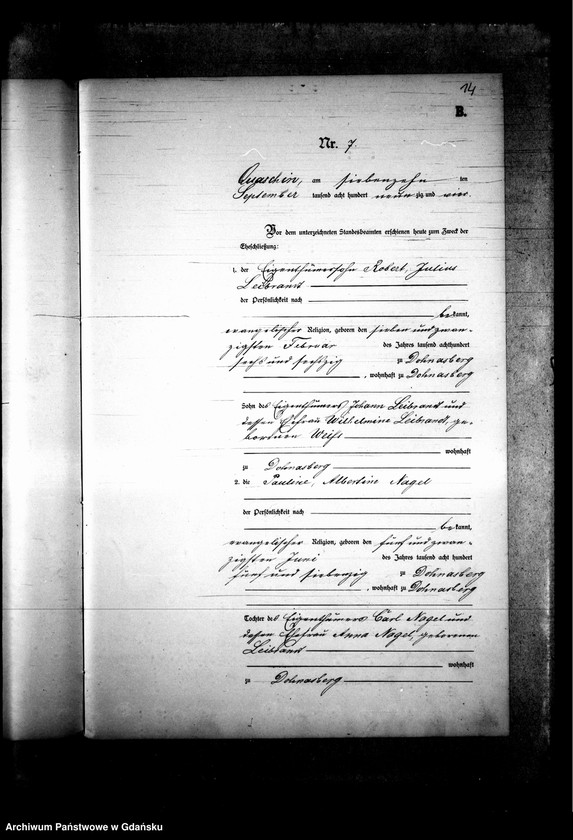 14
B.
Nr. 7.
Quaschin, am siebenzehn ten
September tausend acht hundert neunzig und vier.
Vor dem unterzeichneten Standesbeamten erschienen heute zum Zweck der
Eheschließung:
1. der Eigenthümersohn Robert, Julius
Leibrandt
der Persönlichkeit nach
bekannt,
evangelischer Religion, geboren den sieben und zwan-
zigsten Februar des Jahres tausend achthundert
sechs und sechzig zu Dohnasberg
, wohnhaft zu Dohnasberg
Sohn des Eigenthümers Johann Leibrandt und
dessen Ehefrau Wilhelmine Leibrandt, ge-
borenen
wohnhaft
zu Dohnasberg
2. die Pauline, Albertine Nagel
der Persönlichkeit nach
bekannt,
evangelischer Religion, geboren den fünf und zwan-
zigsten Juni des Jahres tausend acht hundert
fünf und siebenzig zu Dohnasberg
, wohnhaft zu Dohnasberg
Tochter des Eigenthümers Carl Nagel und
dessen Ehefrau Anna Nagel, geborenen
Leibrandt
wohnhaft
zu Dohnasberg
Archiwum Państwowe w Gdańsku